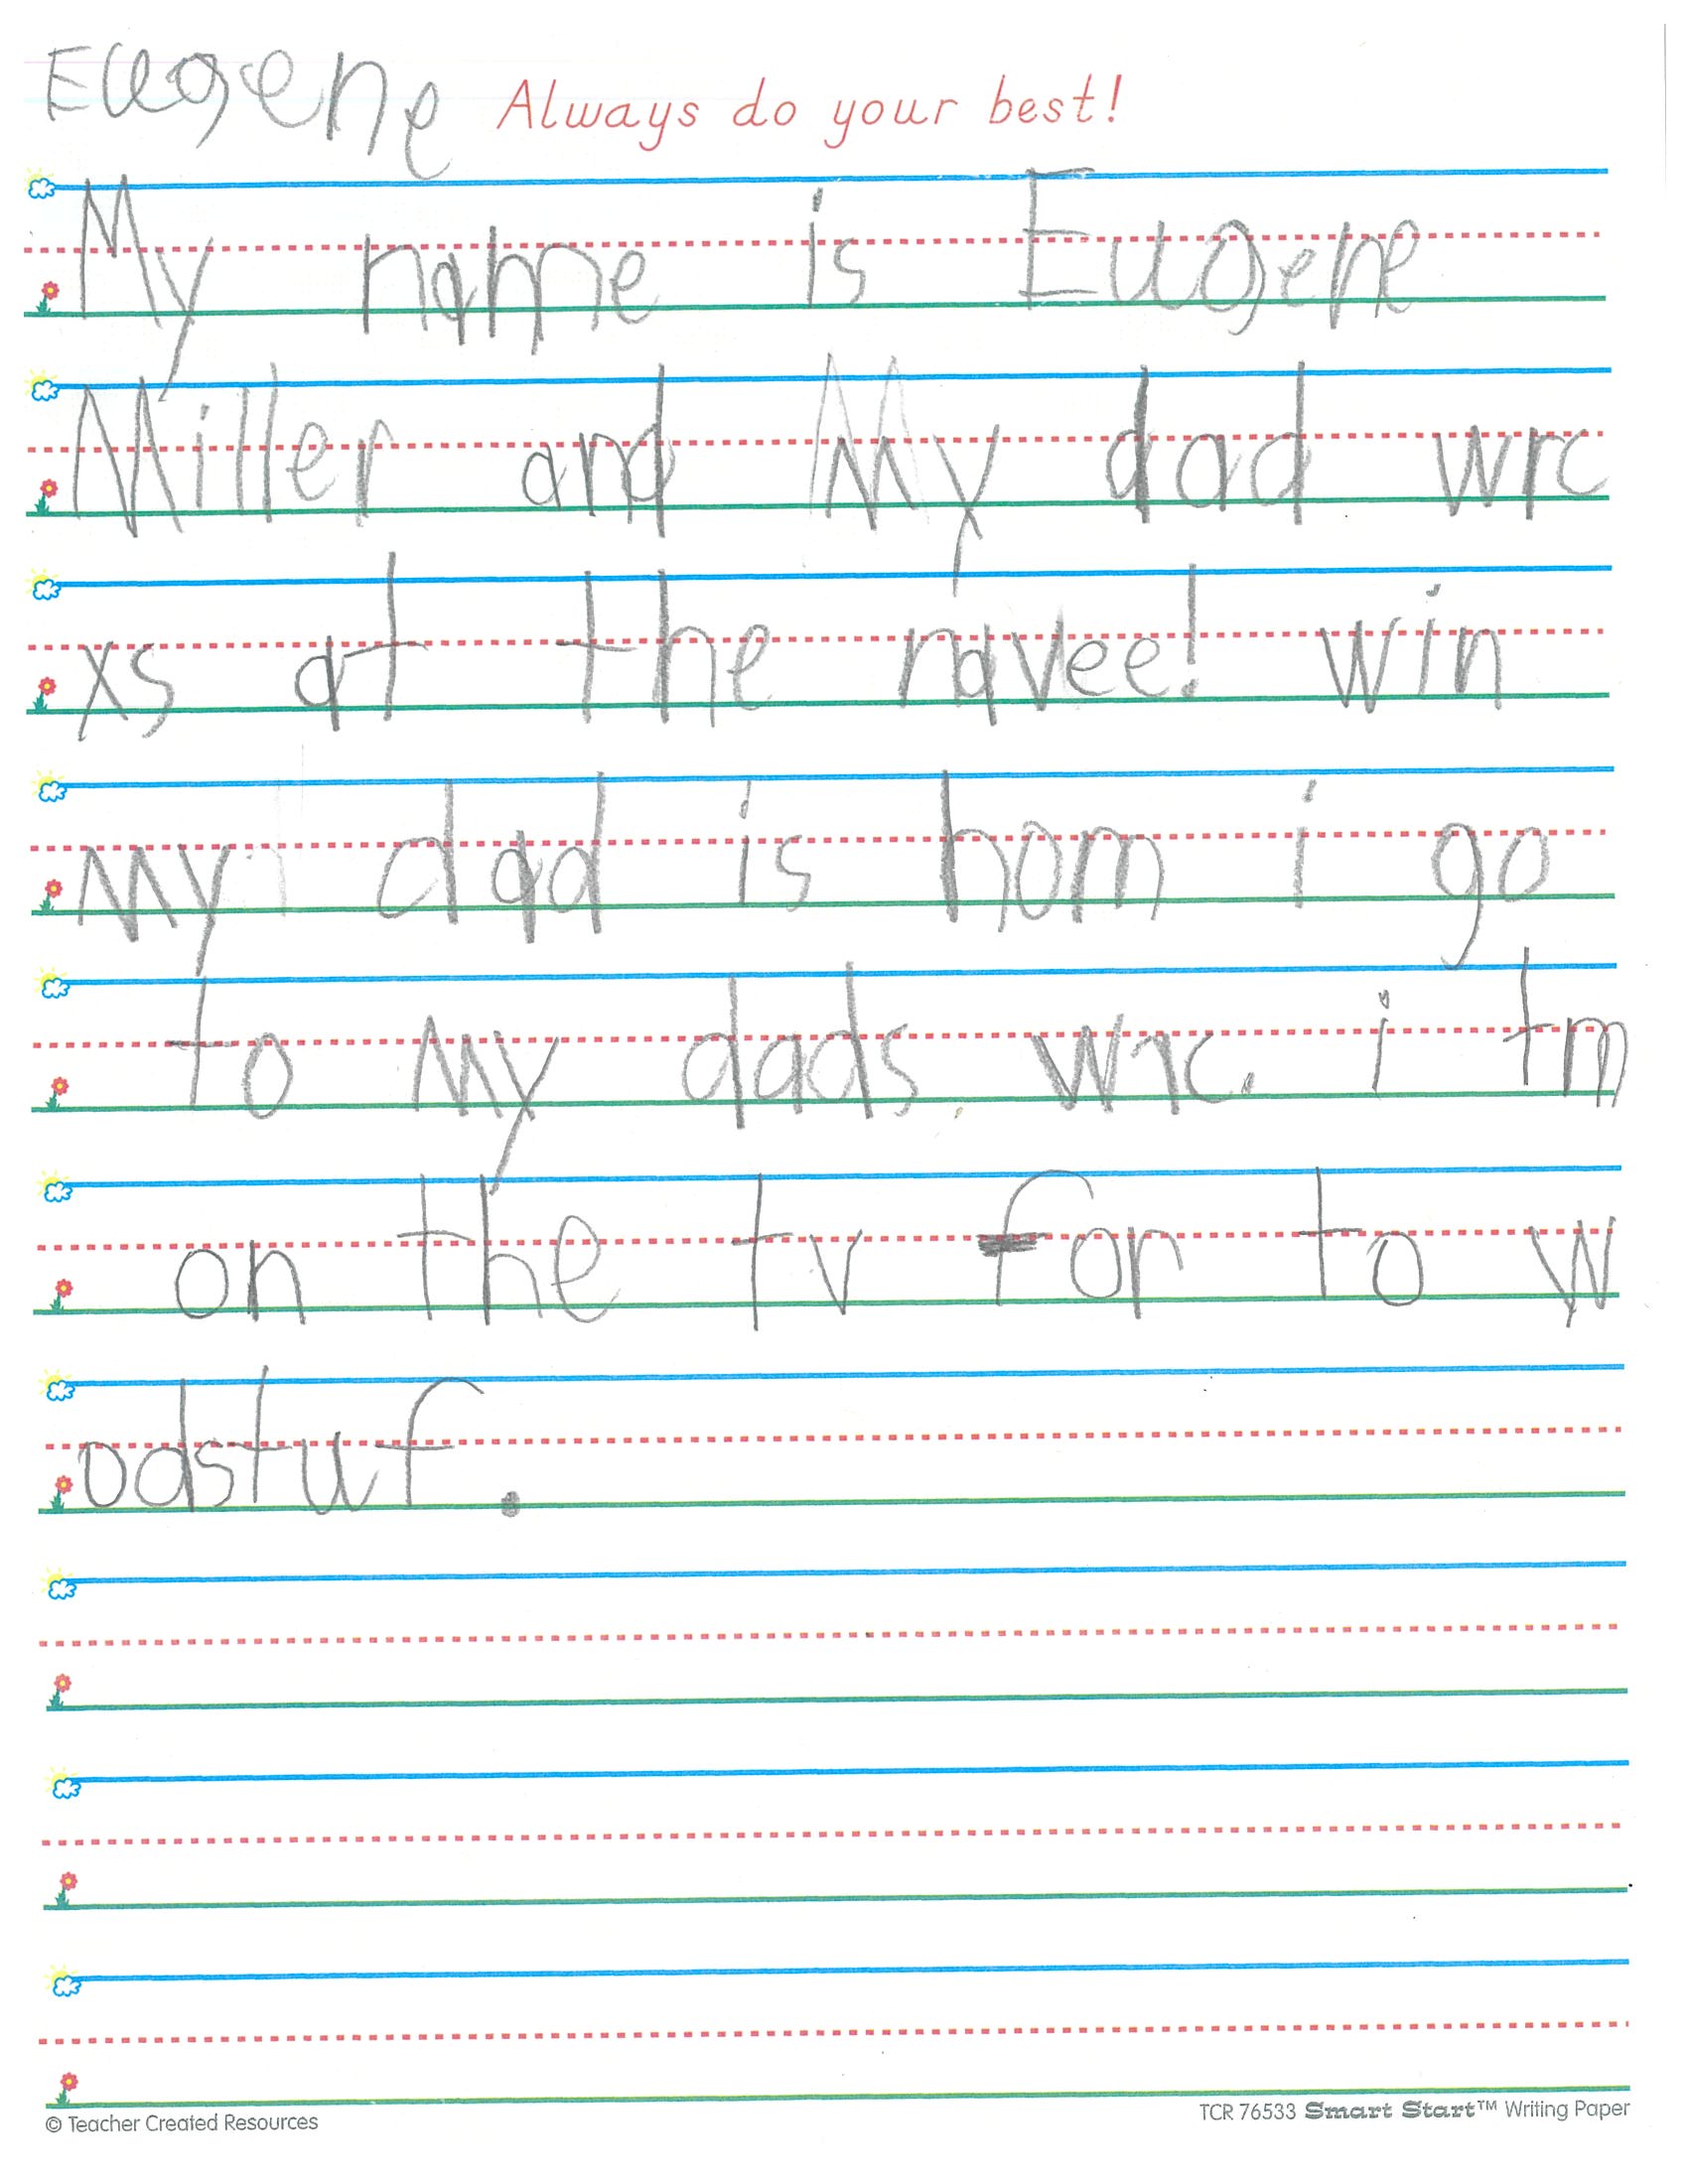 Eugene
Always do your best!
My name is Eugene
Miller and My dad wrc
xs at the ravee! win
my dad is hom i go
to my dads wrc. i trn
on the tv for to w
odstuf.
© Teacher Created Resources
TCR 76533 Smart Start™ Writing Paper